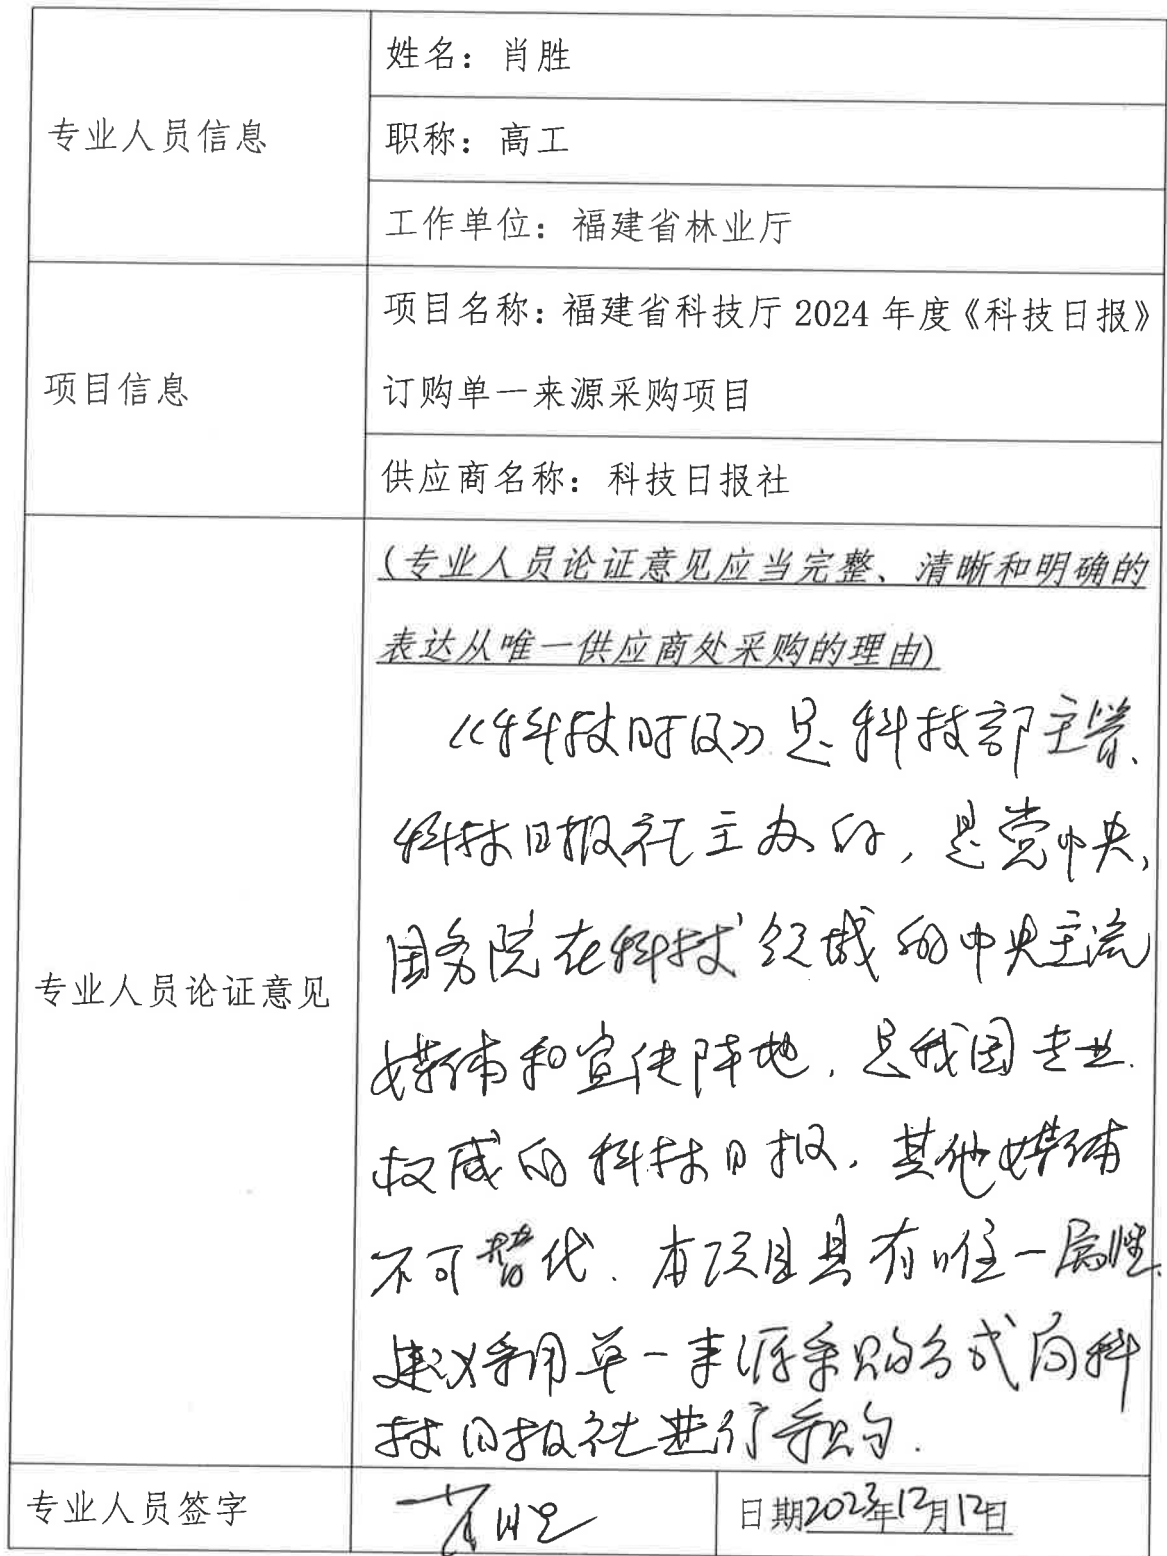 姓名：肖胜
专业人员信息
职称：高工
工作单位：福建省林业厅
项目名称：福建省科技厅 2024 年度《科技日报》
项目信息
订购单一来源采购项目
供应商名称：科技日报社
（专业人员论证意见应当完整、清晰和明确的
表达从唯一供应商处采购的理由）
《科技日报》是科技部主管、
科技日报社主办的，是党中央，
国务院在科技领域的中央主流
专业人员论证意见
媒体和宣传阵地，是我国专业、
权威的科技日报，其他媒体
不可替代．本项目具有唯一属性．
建议采用单一来源采购方式向科
技日报社进行采购．
专业人员签字
肖胜
日期2023年12月12日